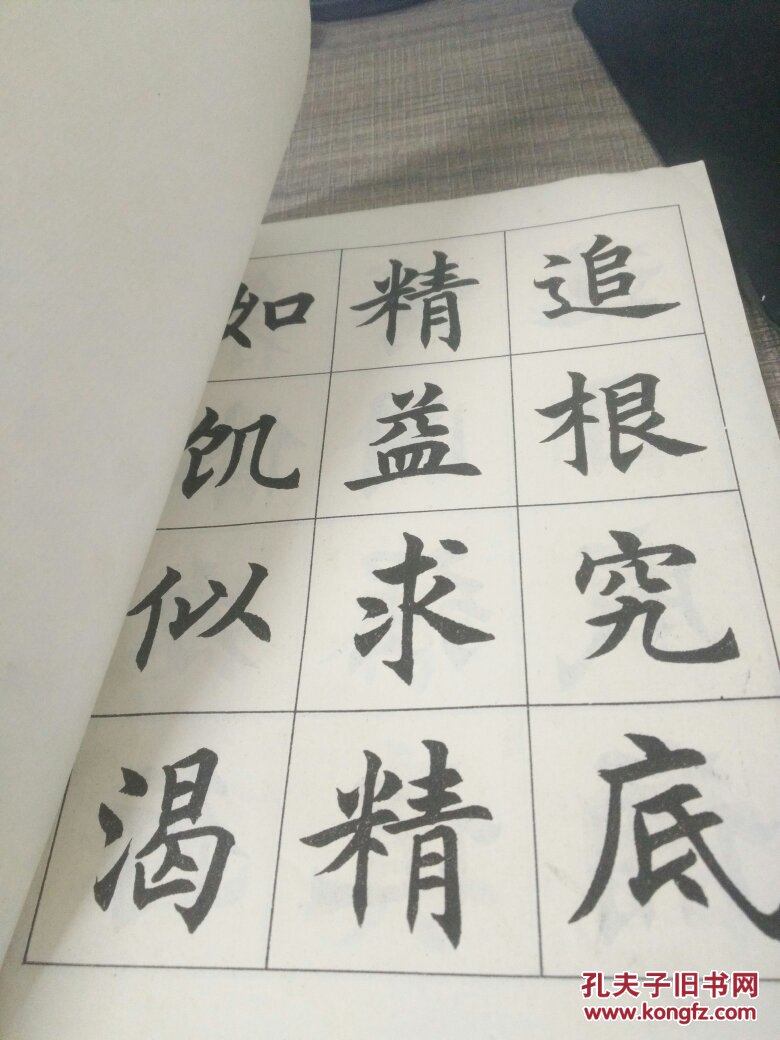 追根究底
精益求精
如饥似渴
孔夫子旧书网
www.kongfz.com